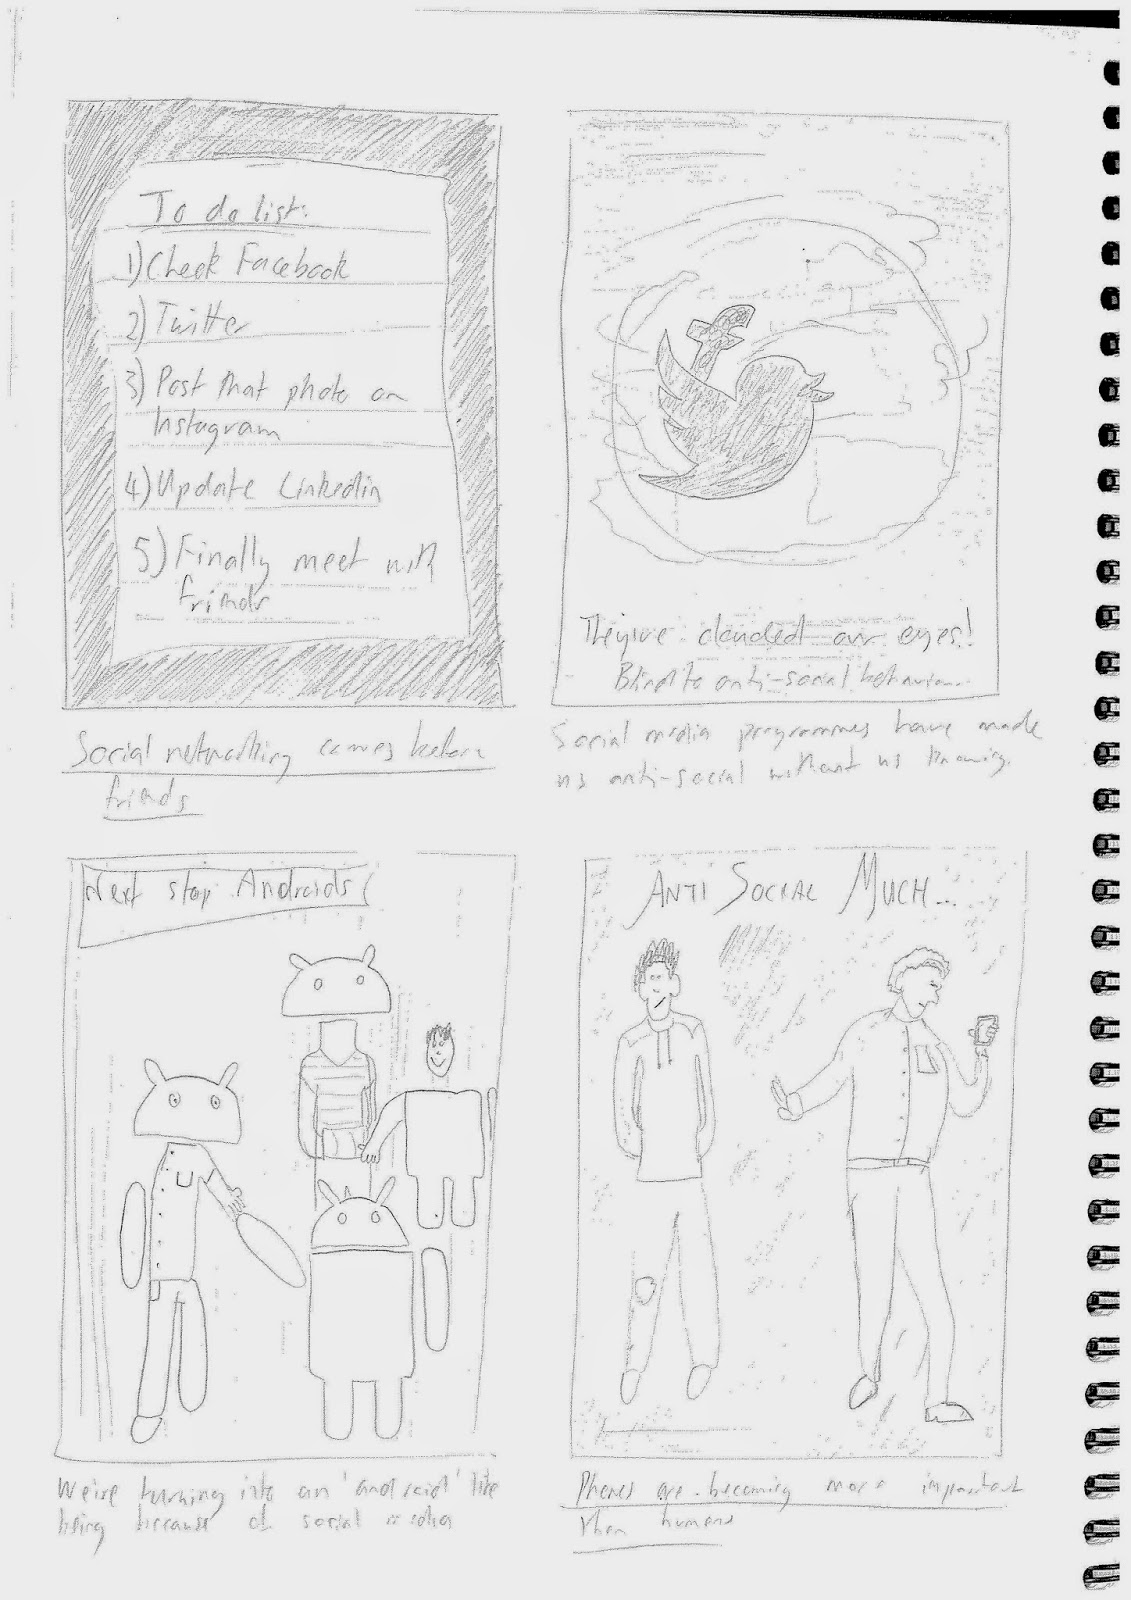 To do list:
1) Check Facebook
2) Twitter
3) Post that photo on
Instagram
4) Update Linkedin
5) Finally meet with
friends
Social networking comes before
friends
They've clouded our eyes!
Blind to anti-social behaviour...
Social media programmes have made
us anti-social without us knowing.
Next stop Androids
We're turning into an 'android' like
being because of social media
ANTI SOCIAL MUCH...
Phones are becoming more important
than humans